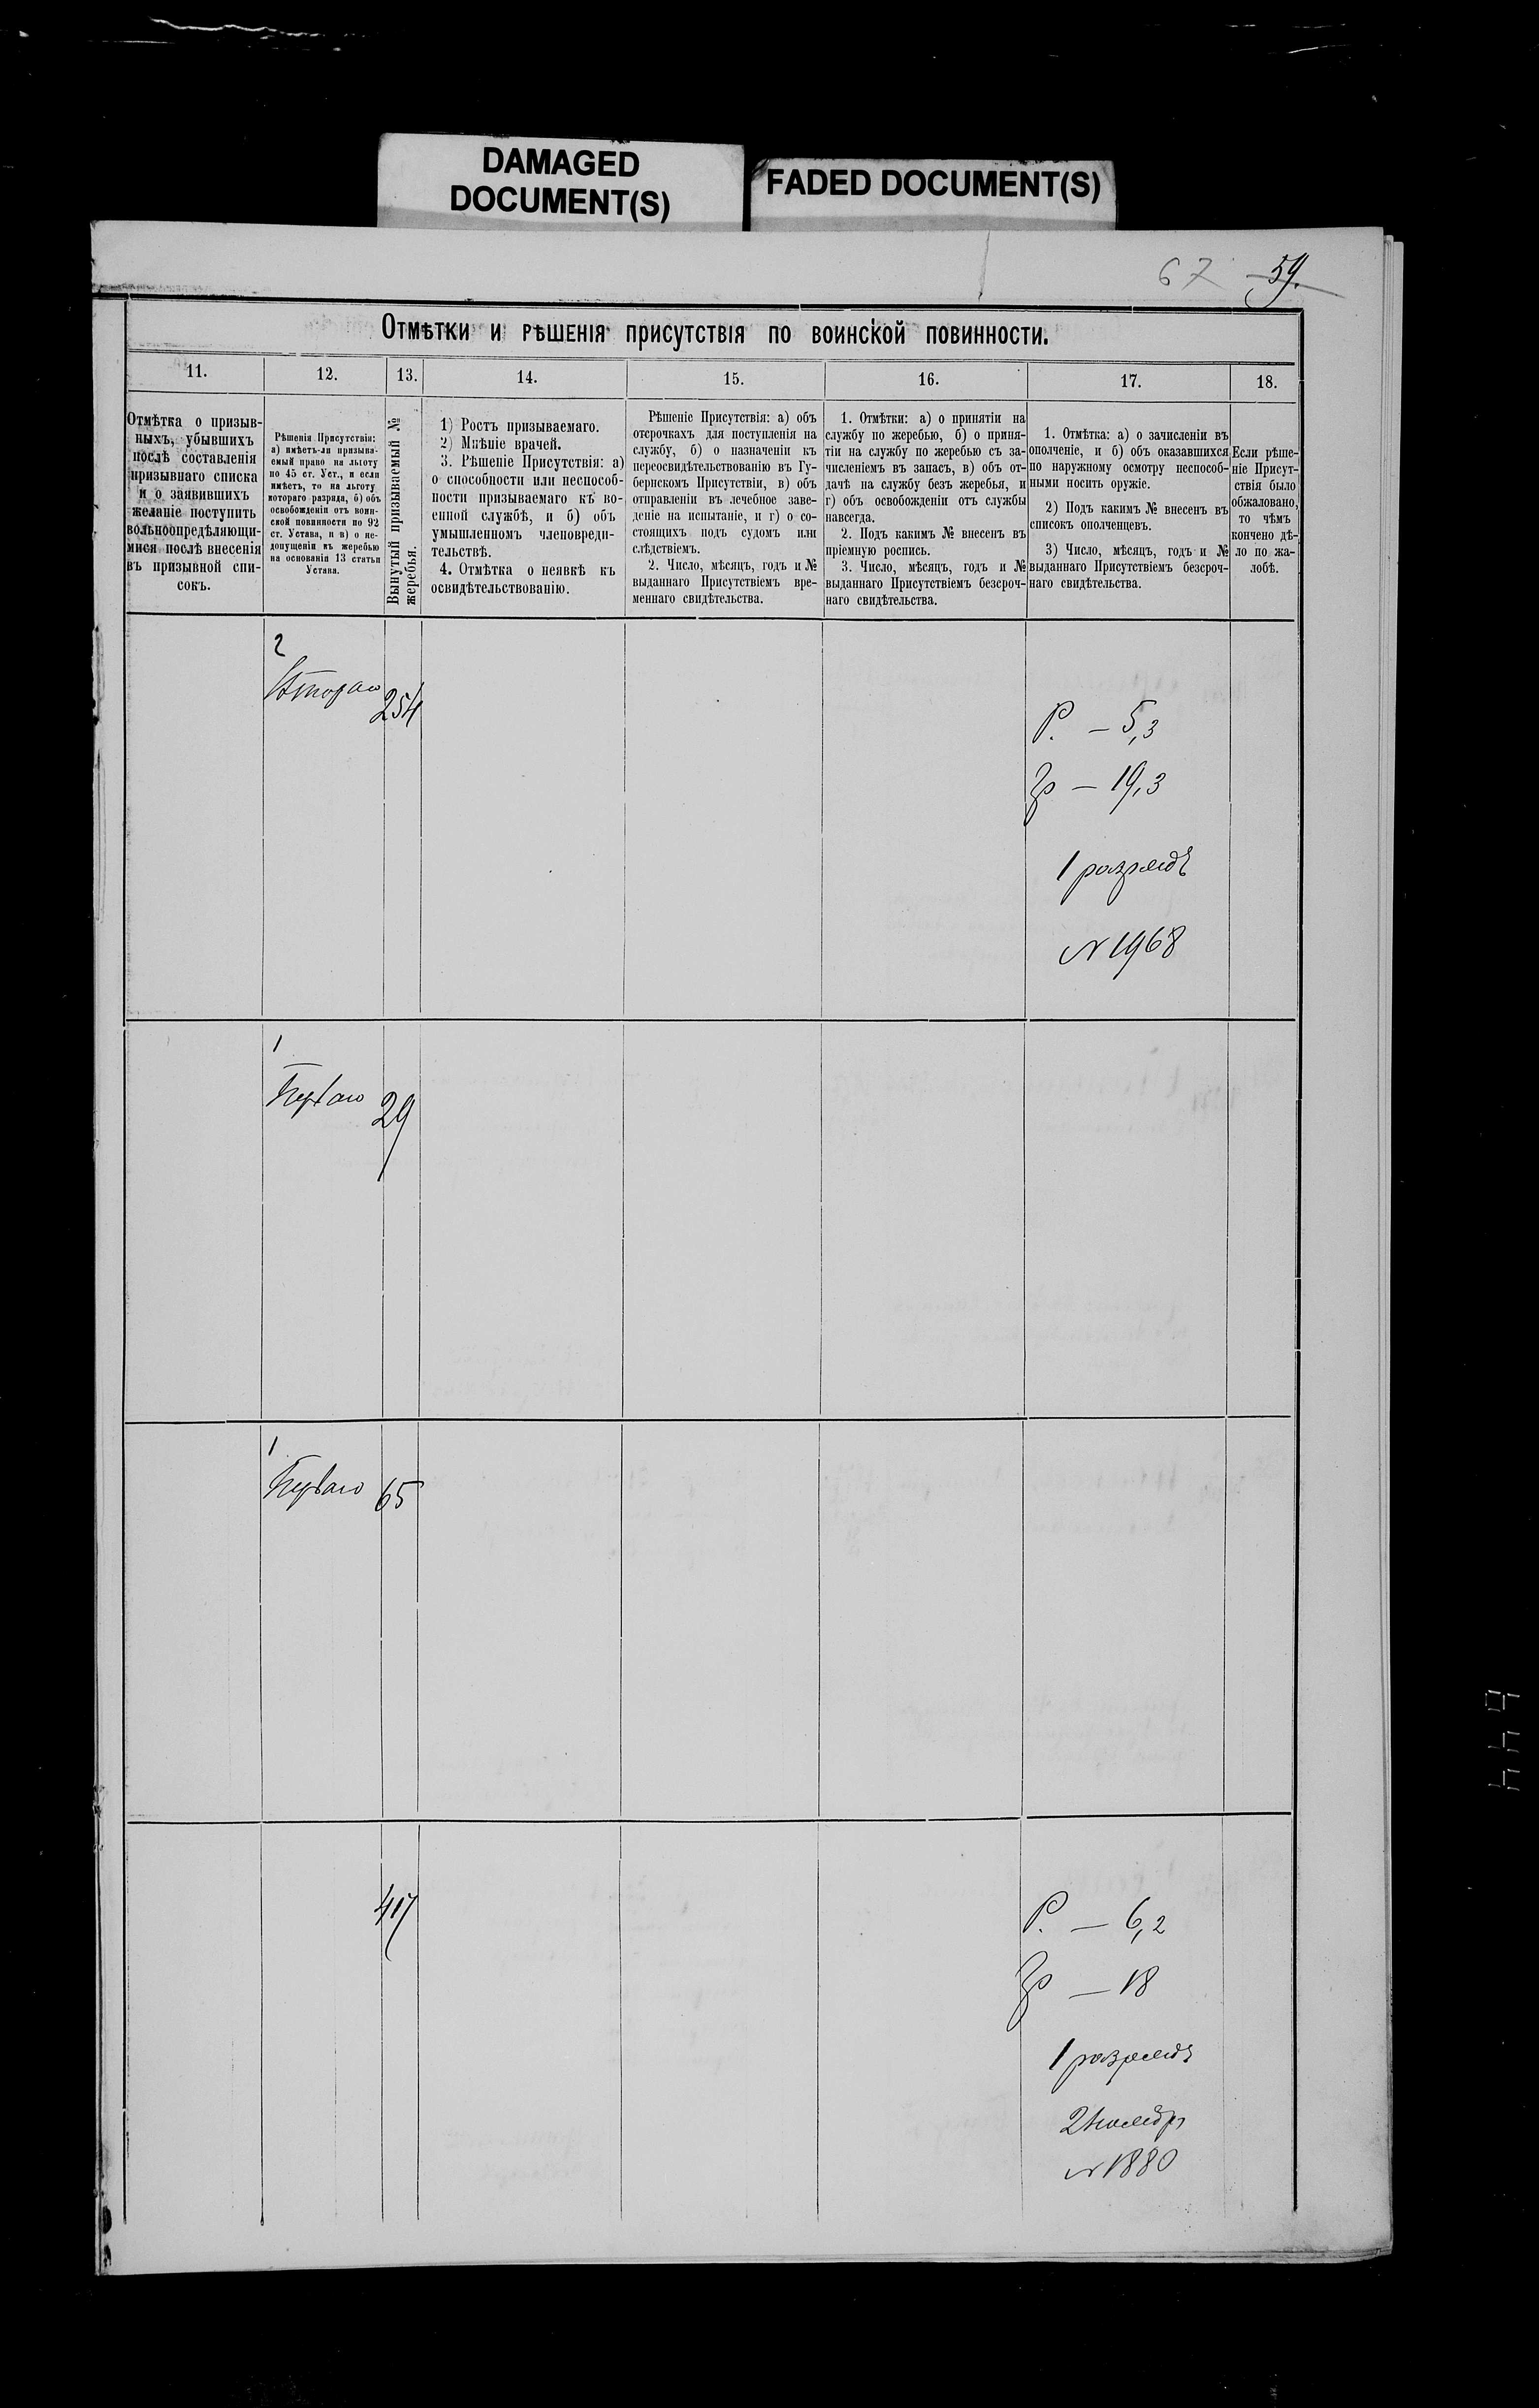 DAMAGED
DOCUMENT(S)
FADED DOCUMENT(S)
67 59.
Отмѣтки и рѣшенія присутствія по воинской повинности.
11.
12.
13.
14.
15.
16.
17.
18.
Отмѣтка о призыв-
ныхъ, убывшихъ
послѣ составленія
призывнаго списка
и о заявившихъ
желаніе поступить
вольноопредѣляющи-
мися послѣ внесенія
въ призывной спи-
сокъ.
Рѣшенія Присутствія:
а) имѣетъ-ли призыва-
емый право на льготу
по 45 ст. Уст., и если
имѣетъ, то на льготу
котораго разряда, б) объ
освобожденіи отъ воин-
ской повинности по 92
ст. Устава, и в) о не-
допущеніи къ жеребью
на основаніи 13 статьи
Устава.
Вынутый призываемый №
жеребья.
1) Ростъ призываемаго.
2) Мнѣніе врачей.
3. Рѣшеніе Присутствія: а)
о способности или неспособ-
ности призываемаго къ во-
енной службѣ, и б) объ
умышленномъ членовреди-
тельствѣ.
4. Отмѣтка о неявкѣ къ
освидѣтельствованію.
Рѣшеніе Присутствія: а) объ
отсрочкахъ для поступленія на
службу, б) о назначеніи къ
переосвидѣтельствованію въ Гу-
бернскомъ Присутствіи, в) объ
отправленіи въ лечебное заве-
деніе на испытаніе, и г) о со-
стоящихъ подъ судомъ или
слѣдствіемъ.
2. Число, мѣсяцъ, годъ и №
выданнаго Присутствіемъ вре-
меннаго свидѣтельства.
1. Отмѣтки: а) о принятіи на
службу по жеребью, б) о приня-
тіи на службу по жеребью съ за-
численіемъ въ запасъ, в) объ от-
дачѣ на службу безъ жеребья, и
г) объ освобожденіи отъ службы
навсегда.
2. Подъ какимъ № внесенъ въ
пріемную роспись.
3. Число, мѣсяцъ, годъ и №
выданнаго Присутствіемъ безсроч-
наго свидѣтельства.
1. Отмѣтка: а) о зачисленіи въ
ополченіе, и б) объ оказавшихся
по наружному осмотру неспособ-
ными носить оружіе.
2) Подъ какимъ № внесенъ въ
списокъ ополченцевъ.
3) Число, мѣсяцъ, годъ и №
выданнаго Присутствіемъ безсроч-
наго свидѣтельства.
Если рѣше-
ніе Присут-
ствія было
обжаловано,
то чѣмъ
кончено дѣ-
ло по жа-
лобѣ.
2
Втораго
254
Р. — 5,3
Гр — 19,3
1 разрядъ
№ 1968
1
Перваго
29
1
Перваго
65
417
Р. — 6,2
Гр — 18
1 разрядъ
2 Ноября
№ 1880
644